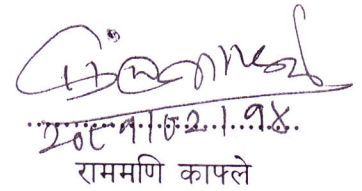 २०८१।०२।१४
राममणि काफ्ले